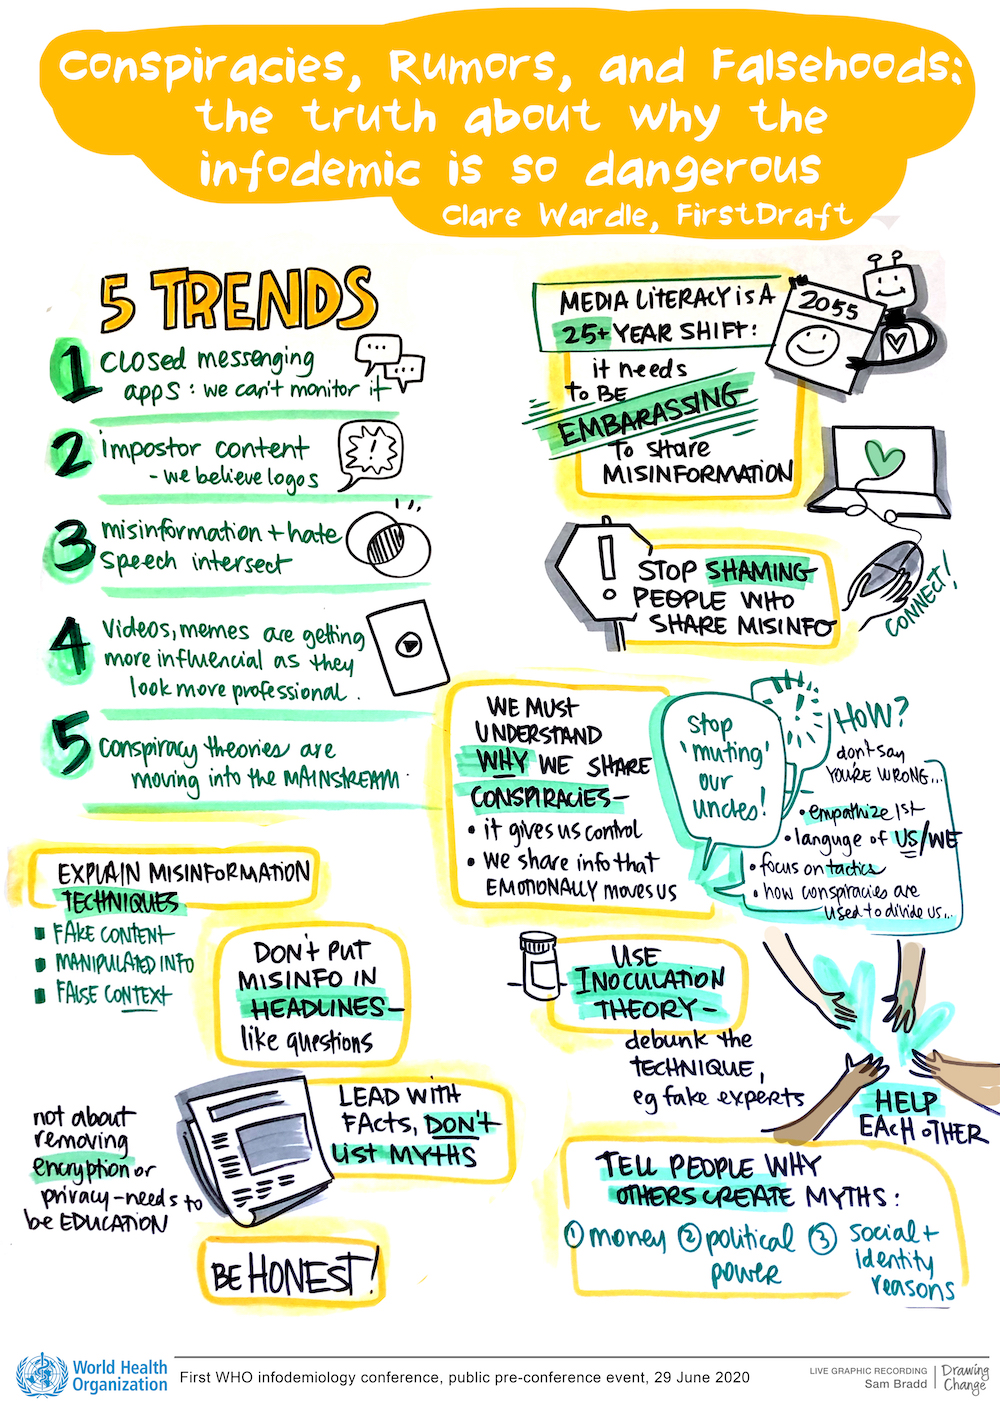 Conspiracies, Rumors, and Falsehoods:
the truth about why the
infodemic is so dangerous
Clare Wardle, FirstDraft
5 TRENDS
1 Closed messenging
apps: we can't monitor it
2 impostor content
- we believe logos
3 misinformation + hate
speech intersect
4 Videos, memes are getting
more influencial as they
look more professional.
5 conspiracy theories are
moving into the MAINSTREAM.
MEDIA LITERACY IS A
25+ YEAR SHIFT:
it needs
TO BE
EMBARASSING
TO SHARE
MISINFORMATION
2055
STOP SHAMING
PEOPLE WHO
SHARE MISINFO
CONNECT!
WE MUST
UNDERSTAND
WHY WE SHARE
CONSPIRACIES-
• it gives us control
• we share info that
EMOTIONALLY moves us
Stop
'muting'
our
uncles!
HOW?
don't say
YOU'RE WRONG...
• empathize 1st
• languge of US/WE
• focus on tactics
• how conspiracies are
used to divide us...
EXPLAIN MISINFORMATION
TECHNIQUES
FAKE CONTENT
MANIPULATED INFO
FALSE CONTEXT
DON'T PUT
MISINFO IN
HEADLINES-
like questions
USE
INOCULATION
THEORY-
debunk the
TECHNIQUE,
eg fake experts
HELP
EACH OTHER
LEAD WITH
FACTS, DON'T
LIST MYTHS
not about
removing
encryption or
privacy - needs to
be EDUCATION
BE HONEST!
TELL PEOPLE WHY
OTHERS CREATE MYTHS:
① money ② political ③ social +
power identity
reasons
World Health
Organization
First WHO infodemiology conference, public pre-conference event, 29 June 2020
LIVE GRAPHIC RECORDING
Sam Bradd
Drawing
Change